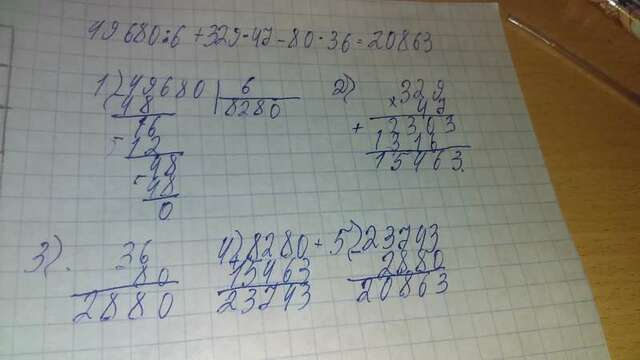 49680:6+329·47-80·36=20863
1) 49680 | 6
48 8280
16
- 12
48
- 48
0
2) 329
× 47
+ 2303
1316
15463.
3). 36
80
2880
4) 8280 +
15463
23743
5) 23743
2880
20863